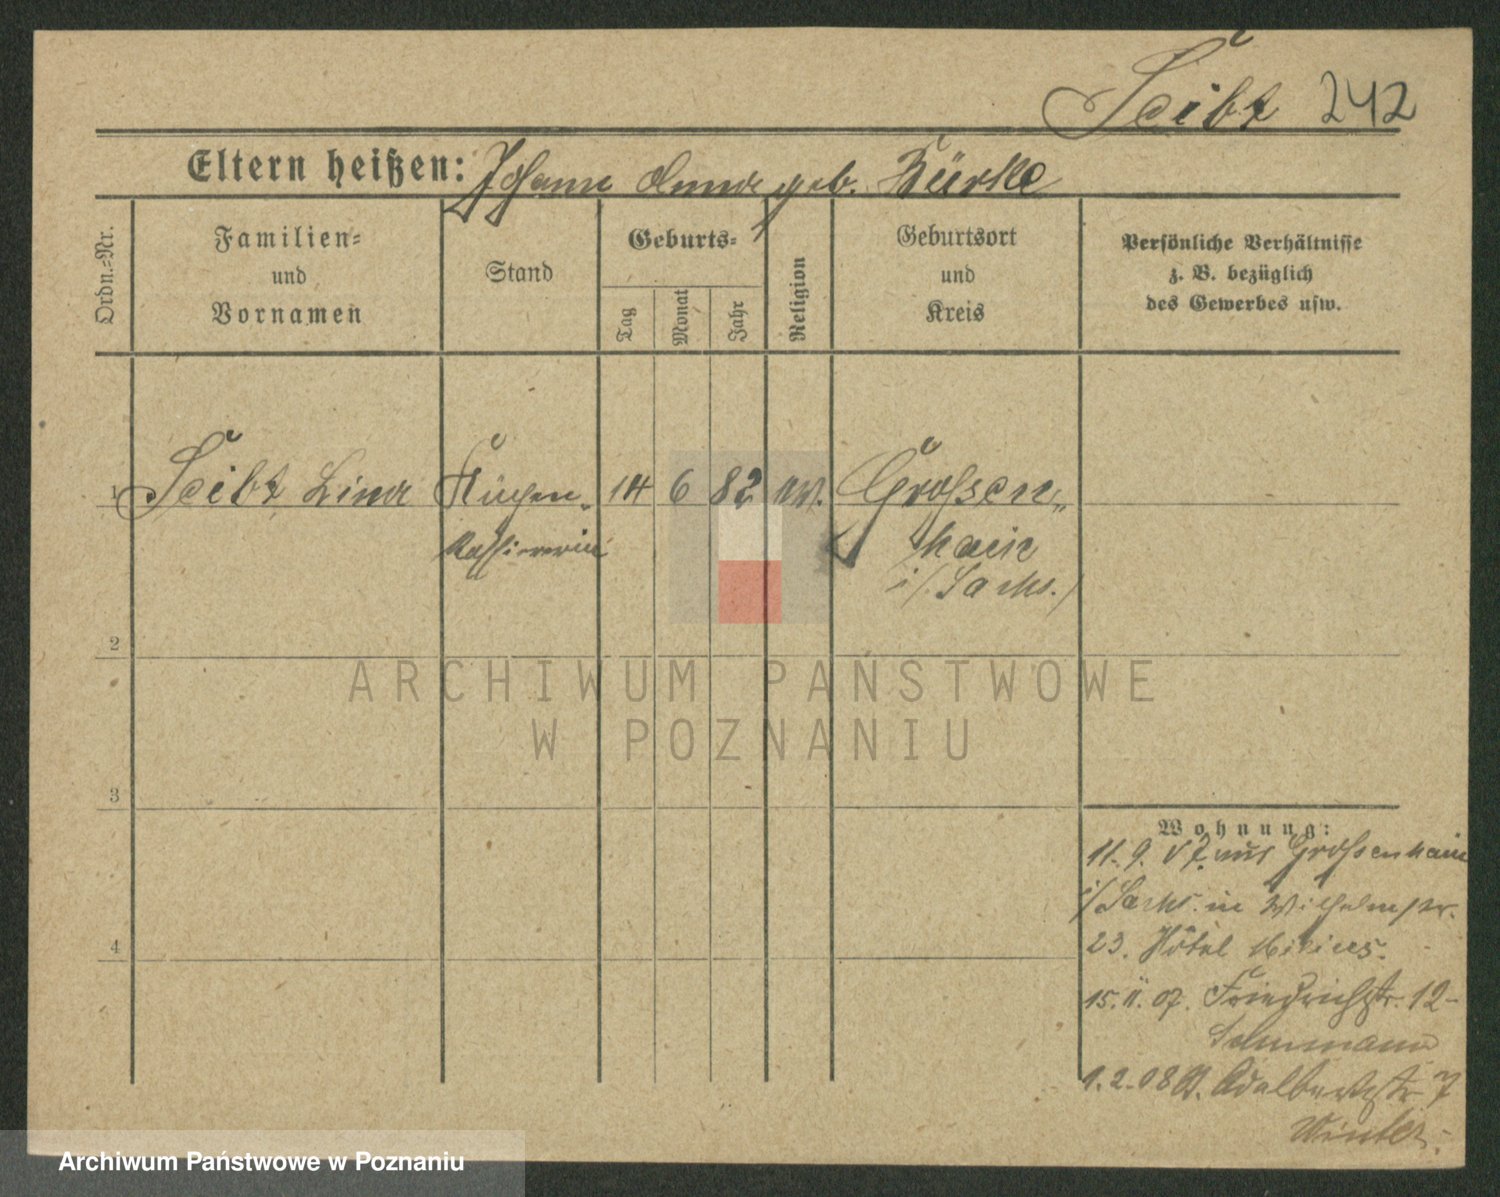 Seibt 242
Eltern heißen: Johann Anna geb. Bürke
Ordn.-Nr.
Familien-
und
Vornamen
Stand
Geburts-
Tag
Monat
Jahr
Religion
Geburtsort
und
Kreis
Persönliche Verhältnisse
z. B. bezüglich
des Gewerbes usw.
1 Seibt Lina Küchen- 14 6 82 ev. Grossen-
kassiererin hain
i/Sachs.
2
ARCHIWUM PAŃSTWOWE
W POZNANIU
3
Wohnung:
11. 9. 07. aus Grossenhain
i/Sachs. in Wilhelmstr.
23. Hôtel
4
15. 11. 07. Friedrichstr. 12
1. 2. 08 St. Adalbertstr. 7
Winter.
Archiwum Państwowe w Poznaniu